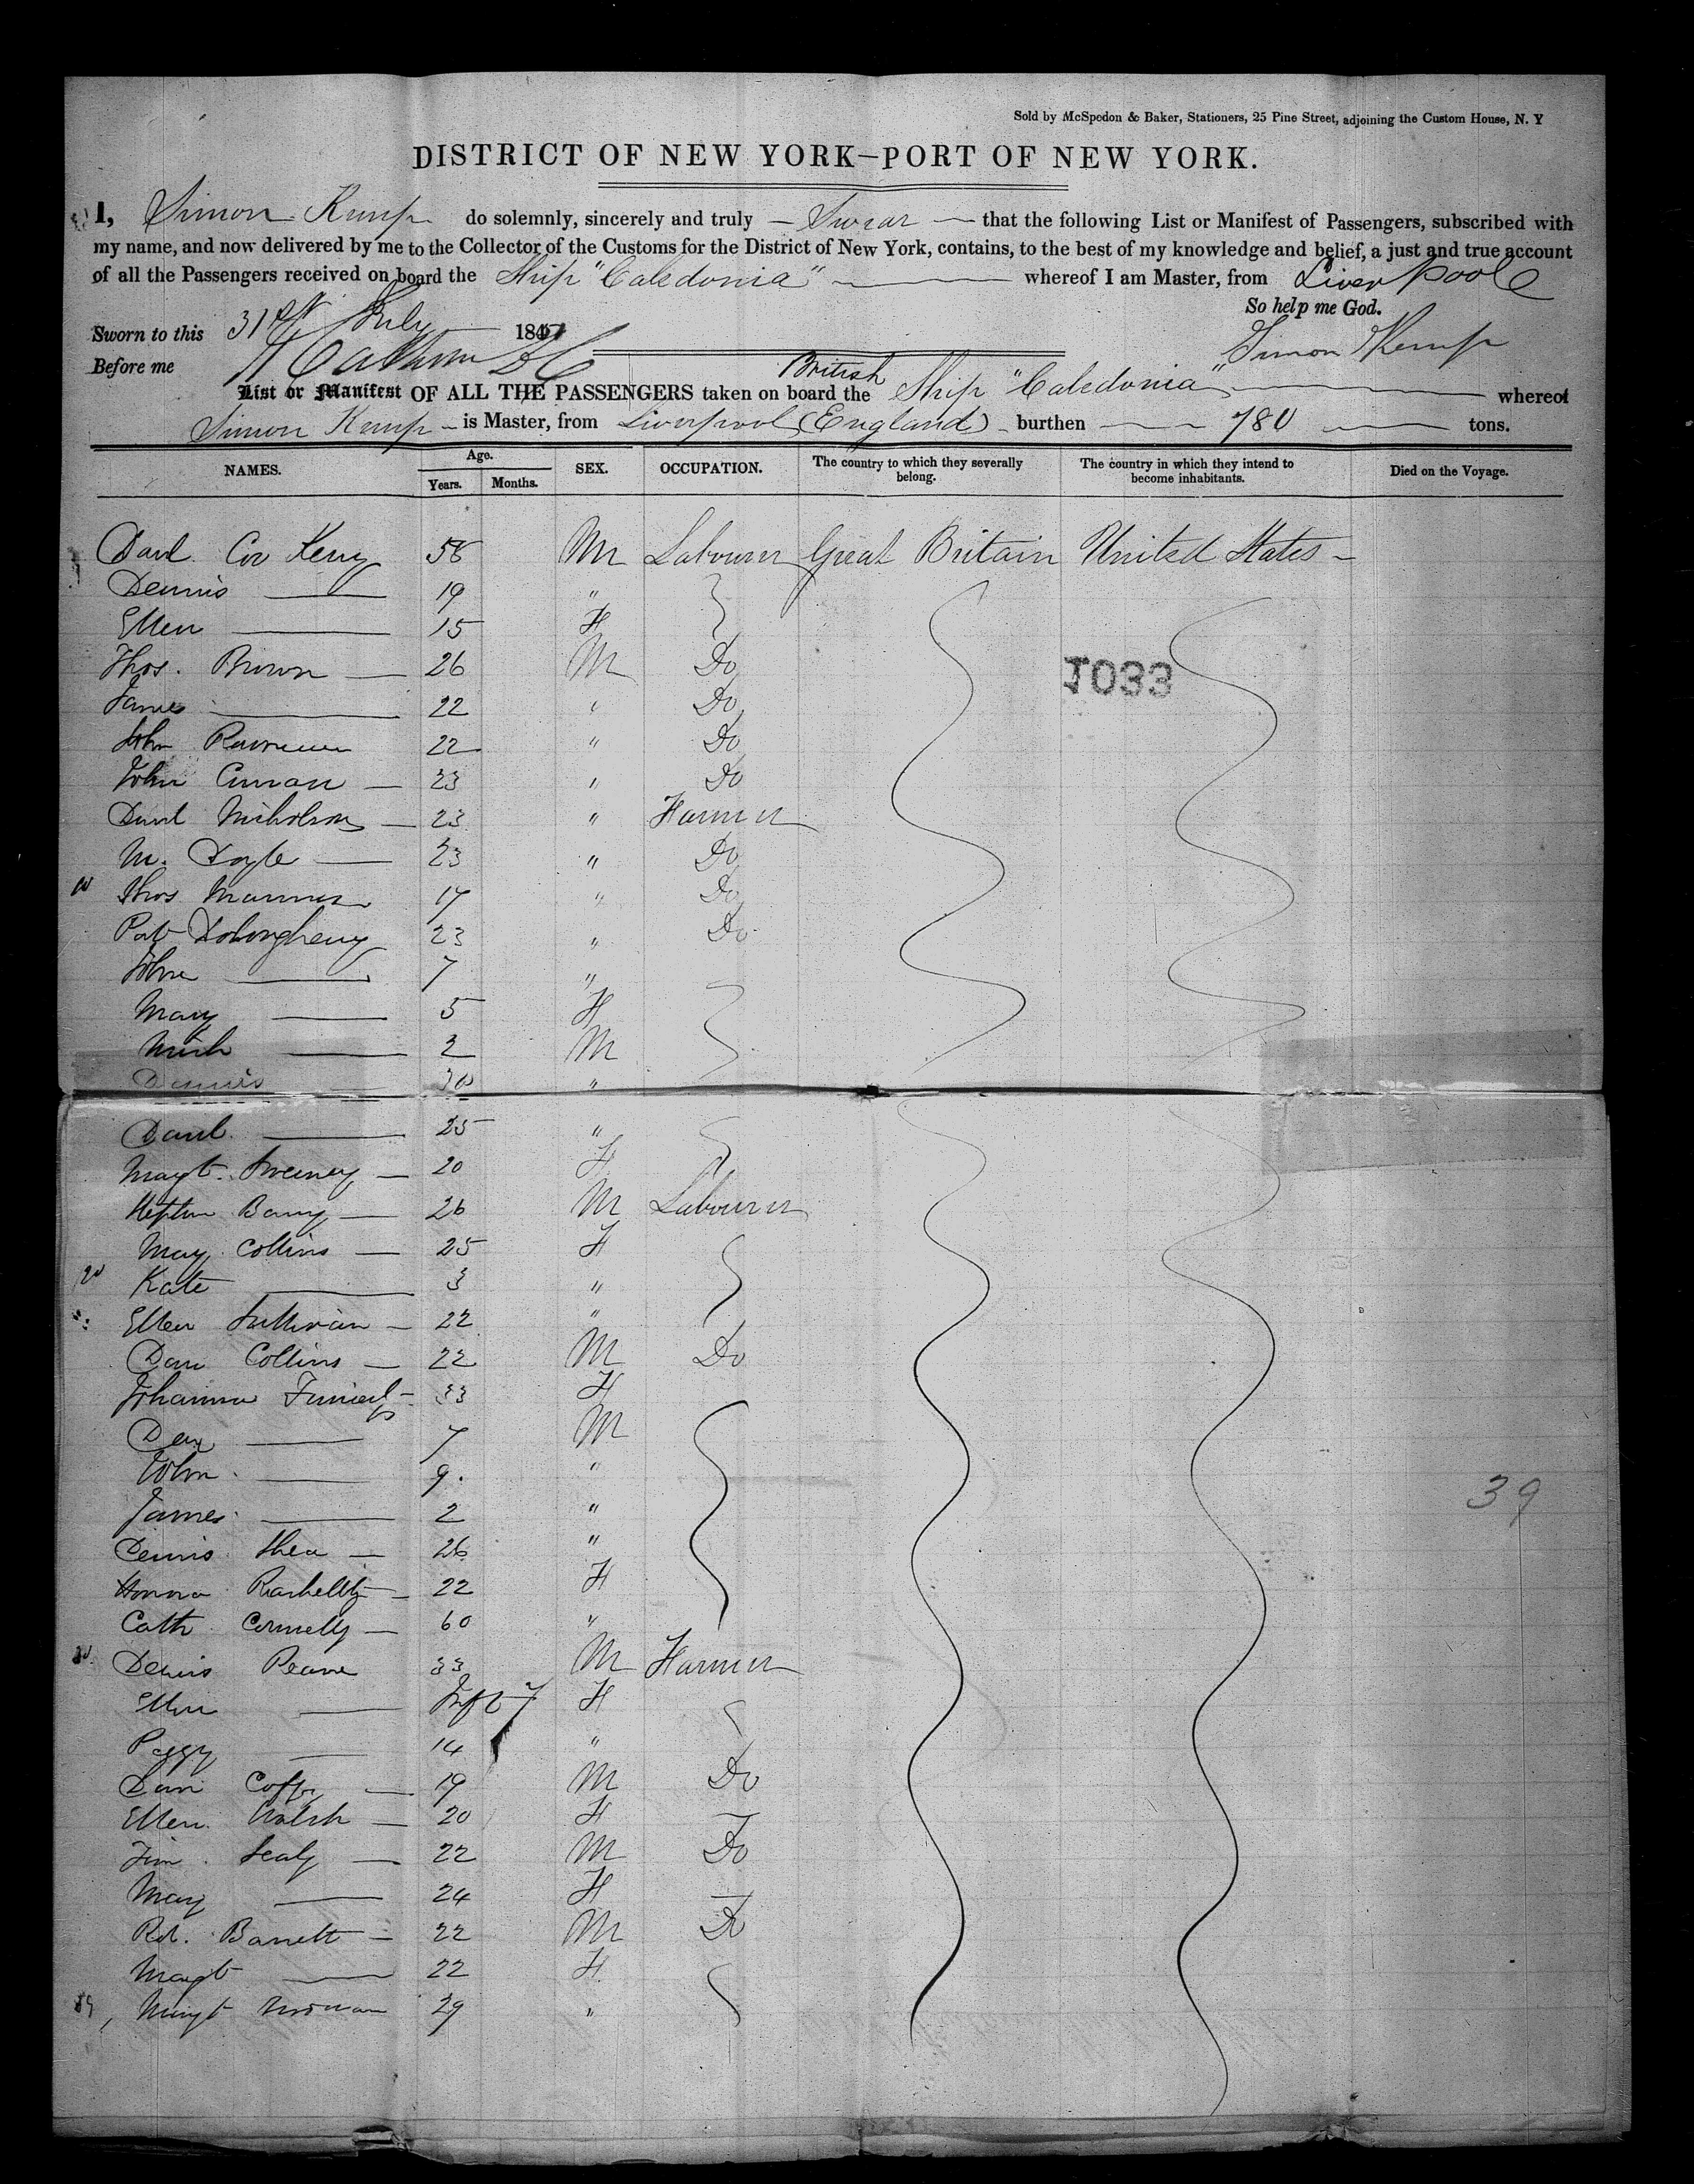 Sold by McSpedon & Baker, Stationers, 25 Pine Street, adjoining the Custom House, N. Y
DISTRICT OF NEW YORK—PORT OF NEW YORK.
I, Simon Kemp do solemnly, sincerely and truly — Swear — that the following List or Manifest of Passengers, subscribed with
my name, and now delivered by me to the Collector of the Customs for the District of New York, contains, to the best of my knowledge and belief, a just and true account
of all the Passengers received on board the Ship "Caledonia" — whereof I am Master, from Liverpool
So help me God.
Sworn to this 31st July 1847
Simon Kemp
Before me
British
List or Manifest OF ALL THE PASSENGERS taken on board the Ship "Caledonia" — whereof
Simon Kemp — is Master, from Liverpool (England) — burthen — 780 — tons.
NAMES. Age. Years. Months. SEX. OCCUPATION. The country to which they severally belong. The country in which they intend to become inhabitants. Died on the Voyage.
Danl Kerry 58 M Labourer Great Britain United States —
Dennis — 19 "
Ellen — 15 F
Thos. Brown — 26 M Do
1033
James — 22 " Do
John 22 " Do
John Curran — 23 " Do
Danl Nicholson — 23 " Farmer
M. Doyle — 23 " Do
10 Thos 17 " Do
Pat 23 " Do
John — 7 "
Mary — 5 F
Mich — 2 M
Dennis — 30 "
Danl. — 25 "
Magt. Sweeney — 20 F
Barry — 26 M Labourer
Mary Collins — 25 F
20 Kate — 3 "
Ellen Sullivan — 22 "
Dan Collins — 22 M Do
Johanna — 33 F
Dan — 7 M
John — 9. "
James — 2 "
39
Dennis Shea — 26 "
Honora — 22 F
Cath Connelly — 60 "
30 Dennis 33 M Farmer
Ellen — Inft 7 F
Peggy — 14 "
Dan Coffy — 19 M Do
Ellen Walsh — 20 F —
Tim. Sealy — 22 M Do
Mary — 24 F —
Rd. Barrett — 22 M Do
Magt — 22 F
39 Magt 29 "